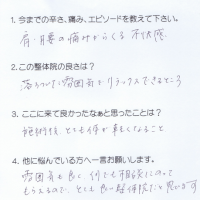 1. 今までの辛さ、痛み、エピソードを教えて下さい。
肩・腰の痛みからくる不快感
2. この整体院の良さは？
落ちついた雰囲気でリラックスできるところ
3. ここに来て良かったなぁと思ったことは？
施術後、とても体が軽くなること
4. 他に悩んでいる方へ一言お願いします。
雰囲気も良く、何でも相談にのって
もらえるので、とても良い整体院だと思います